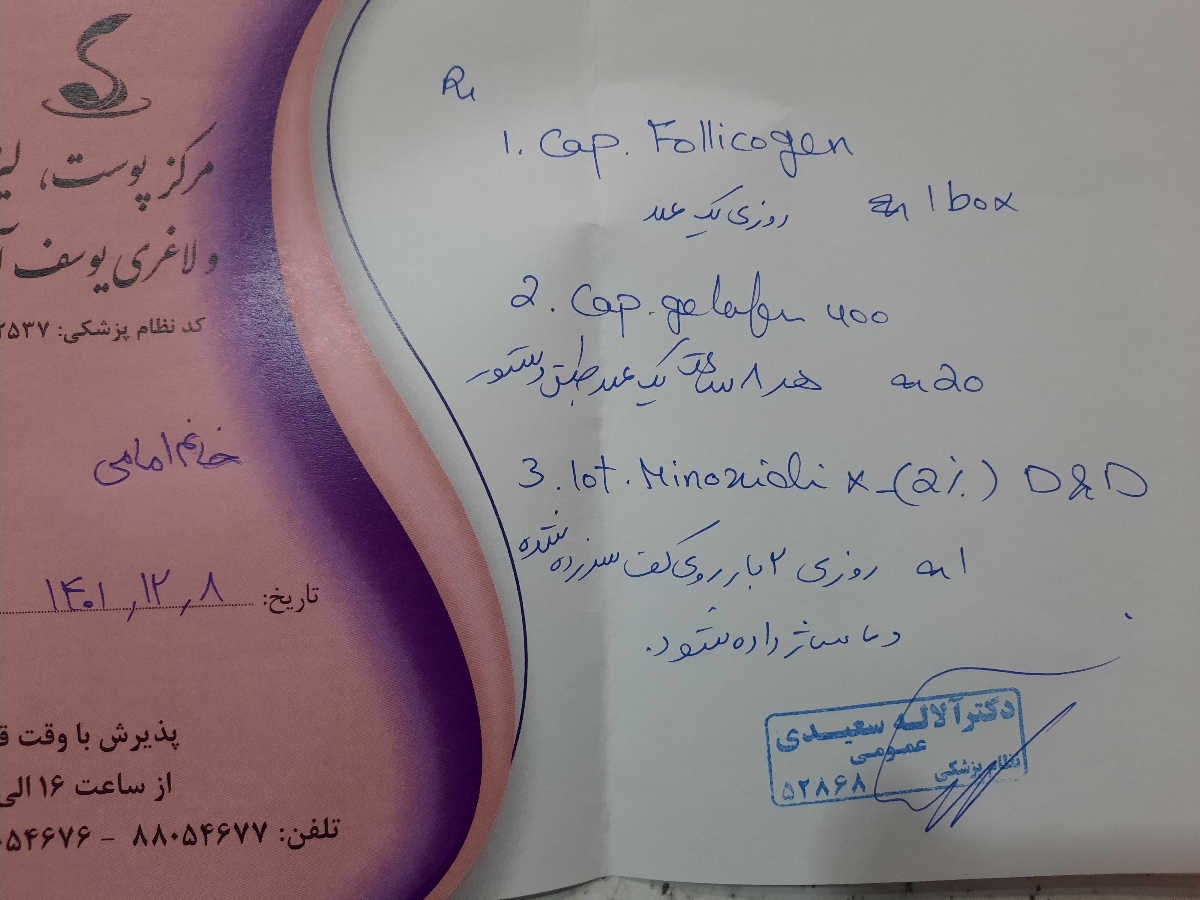 مرکز پوست،
و لاغری یوسف
کد نظام پزشکی: ۲۵۳۷
خانم امامی
تاریخ: ۱۴۰۱,۱۲,۸
پذیرش با وقت
از ساعت ۱۶ الی
تلفن: ۸۸۰۵۴۶۷۷ - ۰۵۴۶۷۶
1. Cap. Follicogen
روزی یک عدد 1 box
2. Cap. gelofen 400
هر ۸ ساعت یک عدد طبق دستور 20
3. lot. Minoxidil x_(2%) D&D
روزی ۲ بار روی کف سر زده
شده
و ماساژ داده شود.
دکتر آلاله سعیدی
عمومی
نظام پزشکی
۵۲۸۶۸